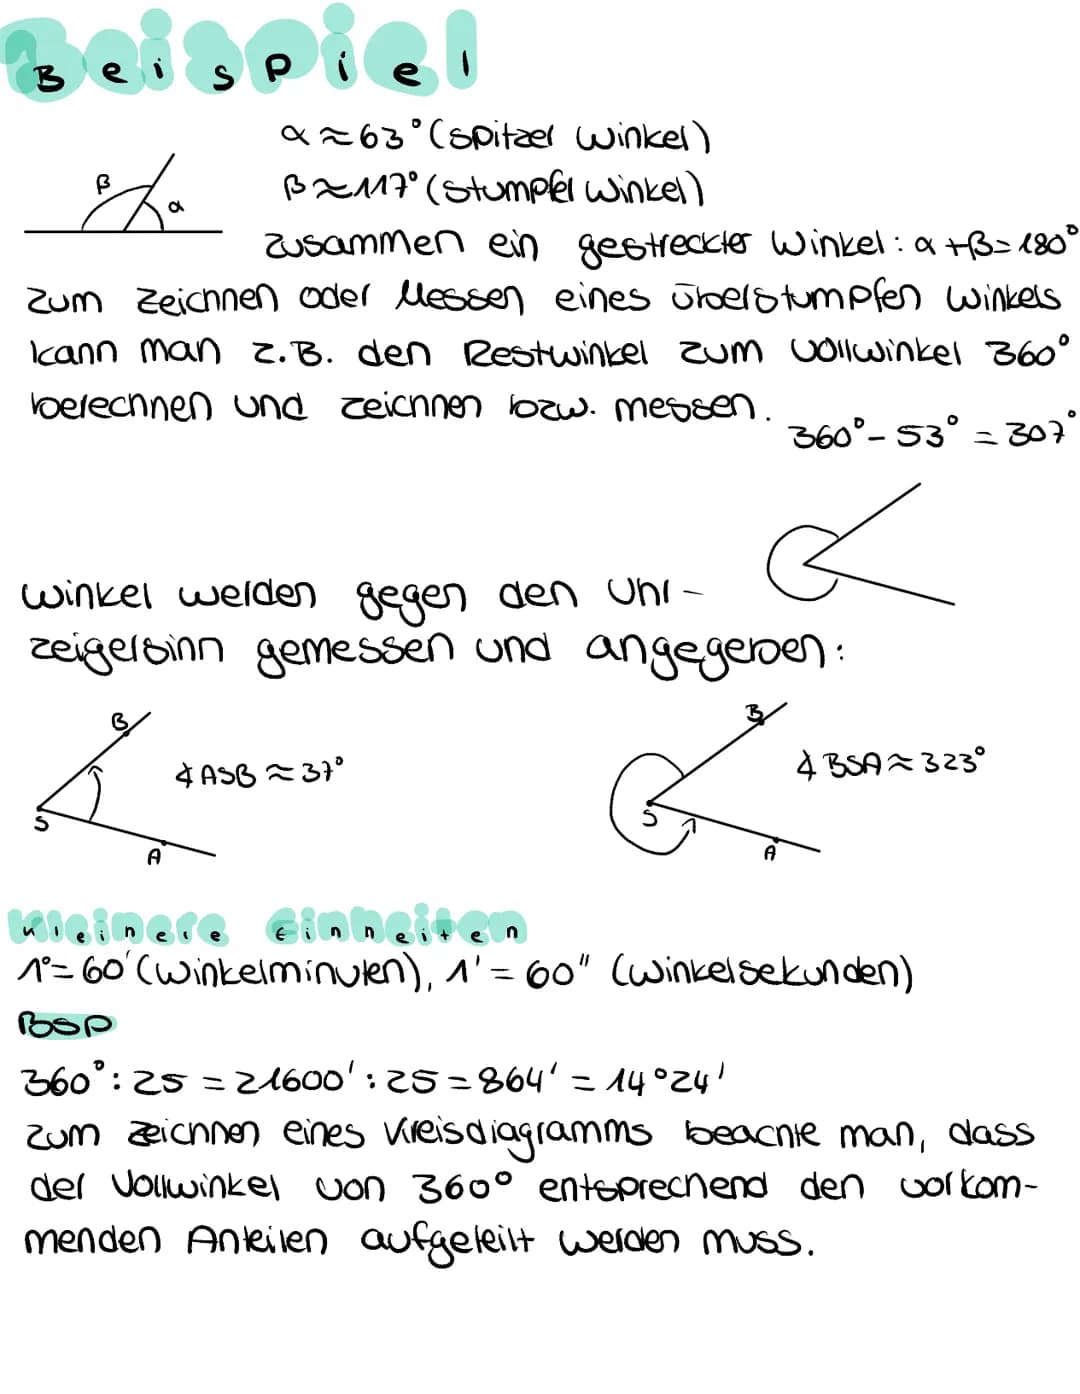 Beispiel
α ≈ 63° (spitzer Winkel)
β ≈ 117° (stumpfer Winkel)
β
α
zusammen ein gestreckter Winkel: α + β = 180°
Zum Zeichnen oder Messen eines überstumpfen Winkels
kann man z.B. den Restwinkel zum Vollwinkel 360°
berechnen und zeichnen bzw. messen.
360° - 53° = 307°
Winkel werden gegen den Uhr-
zeigersinn gemessen und angegeben:
B
∡ ASB ≈ 37°
S
A
B
∡ BSA ≈ 323°
S
A
Kleinere Einheiten
1° = 60' (Winkelminuten), 1' = 60" (Winkelsekunden)
Bsp
360° : 25 = 21600' : 25 = 864' = 14°24'
Zum Zeichnen eines Kreisdiagramms beachte man, dass
der Vollwinkel von 360° entsprechend den vorkom-
menden Anteilen aufgeteilt werden muss.